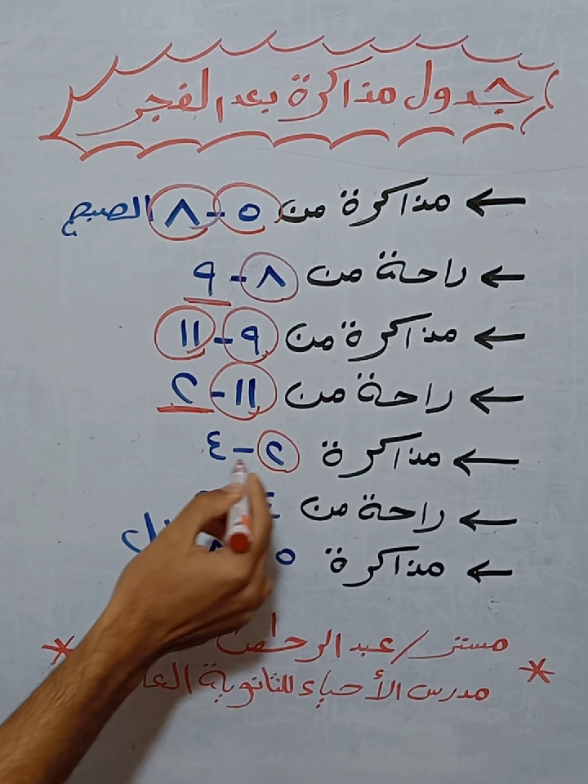 جدول مذاكرة بعد الفجر
← مذاكرة من ٥ - ٨ الصبح
← راحة من ٨ - ٩
← مذاكرة من ٩ - ١١
← راحة من ١١ - ٢
← مذاكرة ٢ - ٤
← راحة من ٤
← مذاكرة ٥
* مستر / عبد الرحمن *
مدرس الأحياء للثانوية